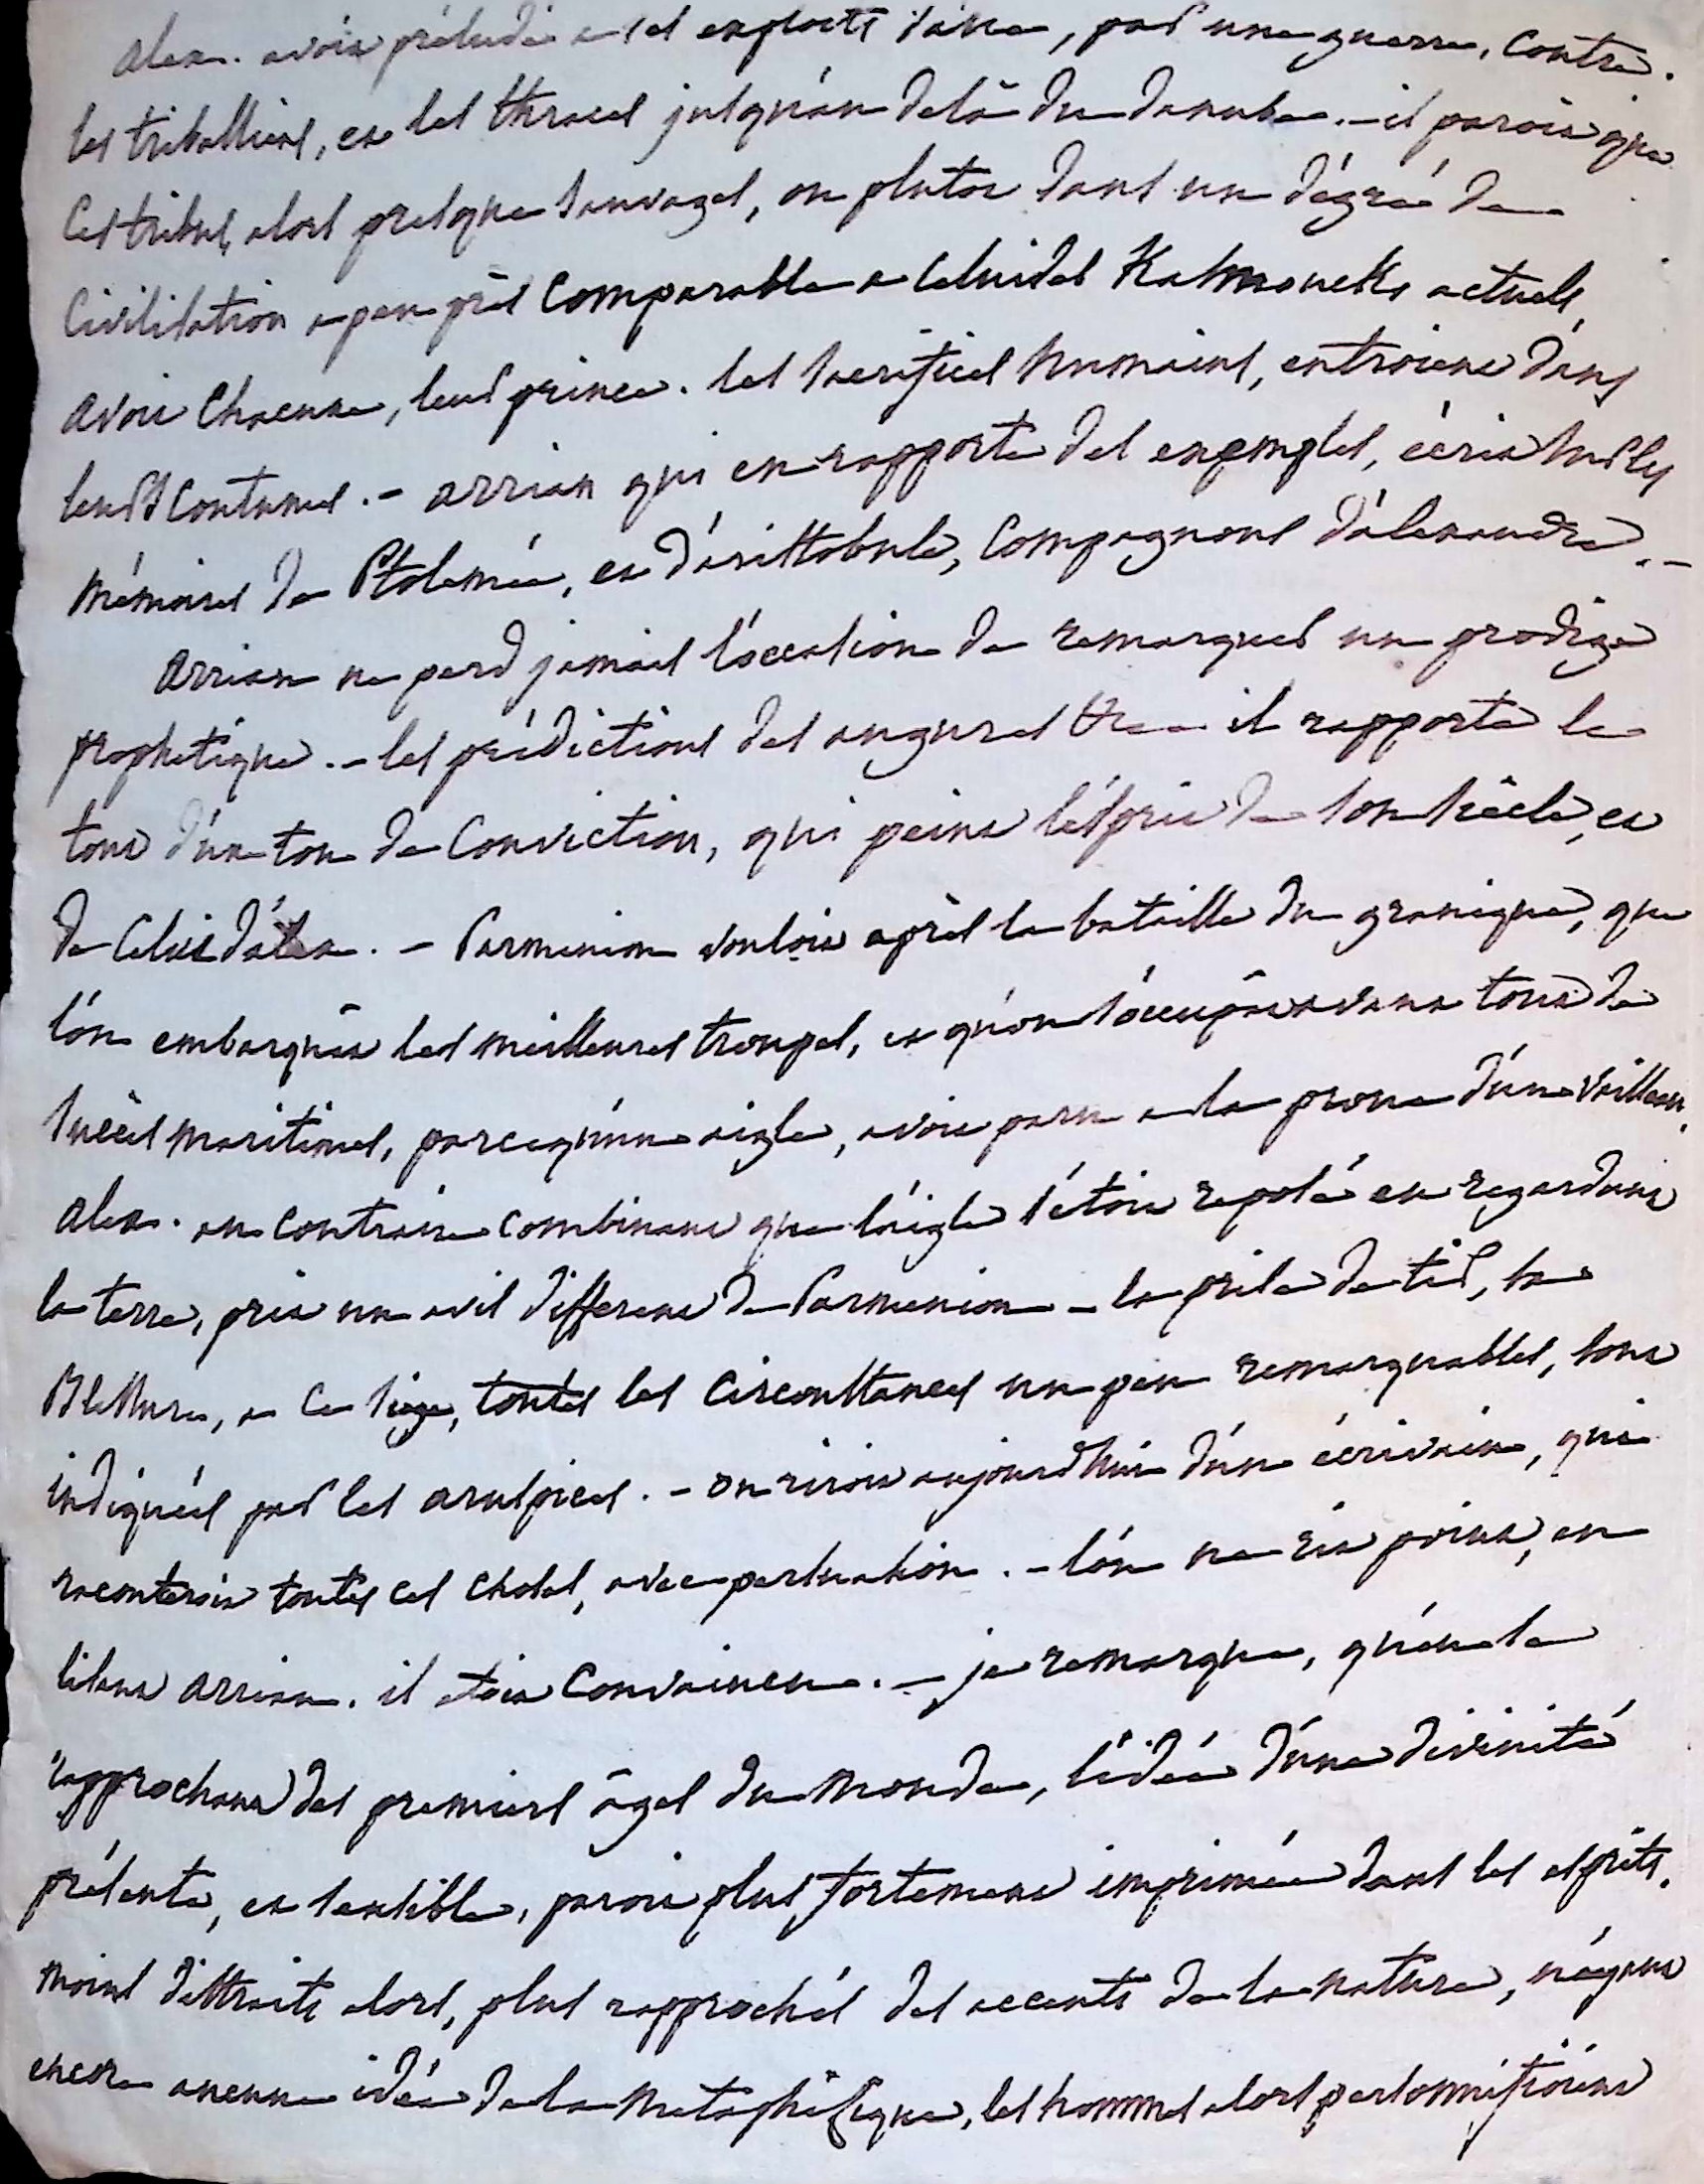 alex. avoit préludé a ses exploits d'asie, par une guerre, contre
les triballiens, et les thraces jusqu'au delà du danube. - il paroit que
ces tribus, alors presque sauvages, ou plutot dans un dégré de
civilisation a peu près comparable a celui des Kalmoucks actuels,
avoit chacune, leur prince. les sacrifices humains, entroient dans
leurs coutumes. - arrian qui en rapporte des exemples, écrit sur les
mémoires de Ptolemée, et d'aristobule, compagnons d'alexandre. -
arrian ne perd jamais l'occasion de remarquer un prodige
prophetique. - les prédictions des augures &c. il rapporte le
tout d'un ton de conviction, qui peint l'esprit de son siècle, et
de celui d'alex. - Parmenion vouloit après la bataille du granique, que
l'on embarquât les meilleures troupes, et qu'on s'occupât avant tout de
succès maritimes, parcequ'un aigle, avoit paru a la proue d'un vaisseau.
alex. au contraire combinant que l'aigle s'étoit reposé en regardant
la terre, prit un avis different de Parmenion - la prise de tir, sa
blessure, a ce siege, toutes les circonstances un peu remarquables, sont
indiqués par les aruspices. - on riroit aujourd'hui d'un écrivain, qui
raconteroit toutes ces choses, avec persuasion. - l'on ne rit point, en
lisant arrian. il etoit convaincu. - je remarque, qu'en se
rapprochant des premiers âges du monde, l'idée d'une divinité
présente, et sensible, paroit plus fortement imprimée dans les esprits.
moins distraits alors, plus rapprochés des accents de la nature, n'ayant
encore aucune idée de la métaphisique, les hommes alors personnifioient